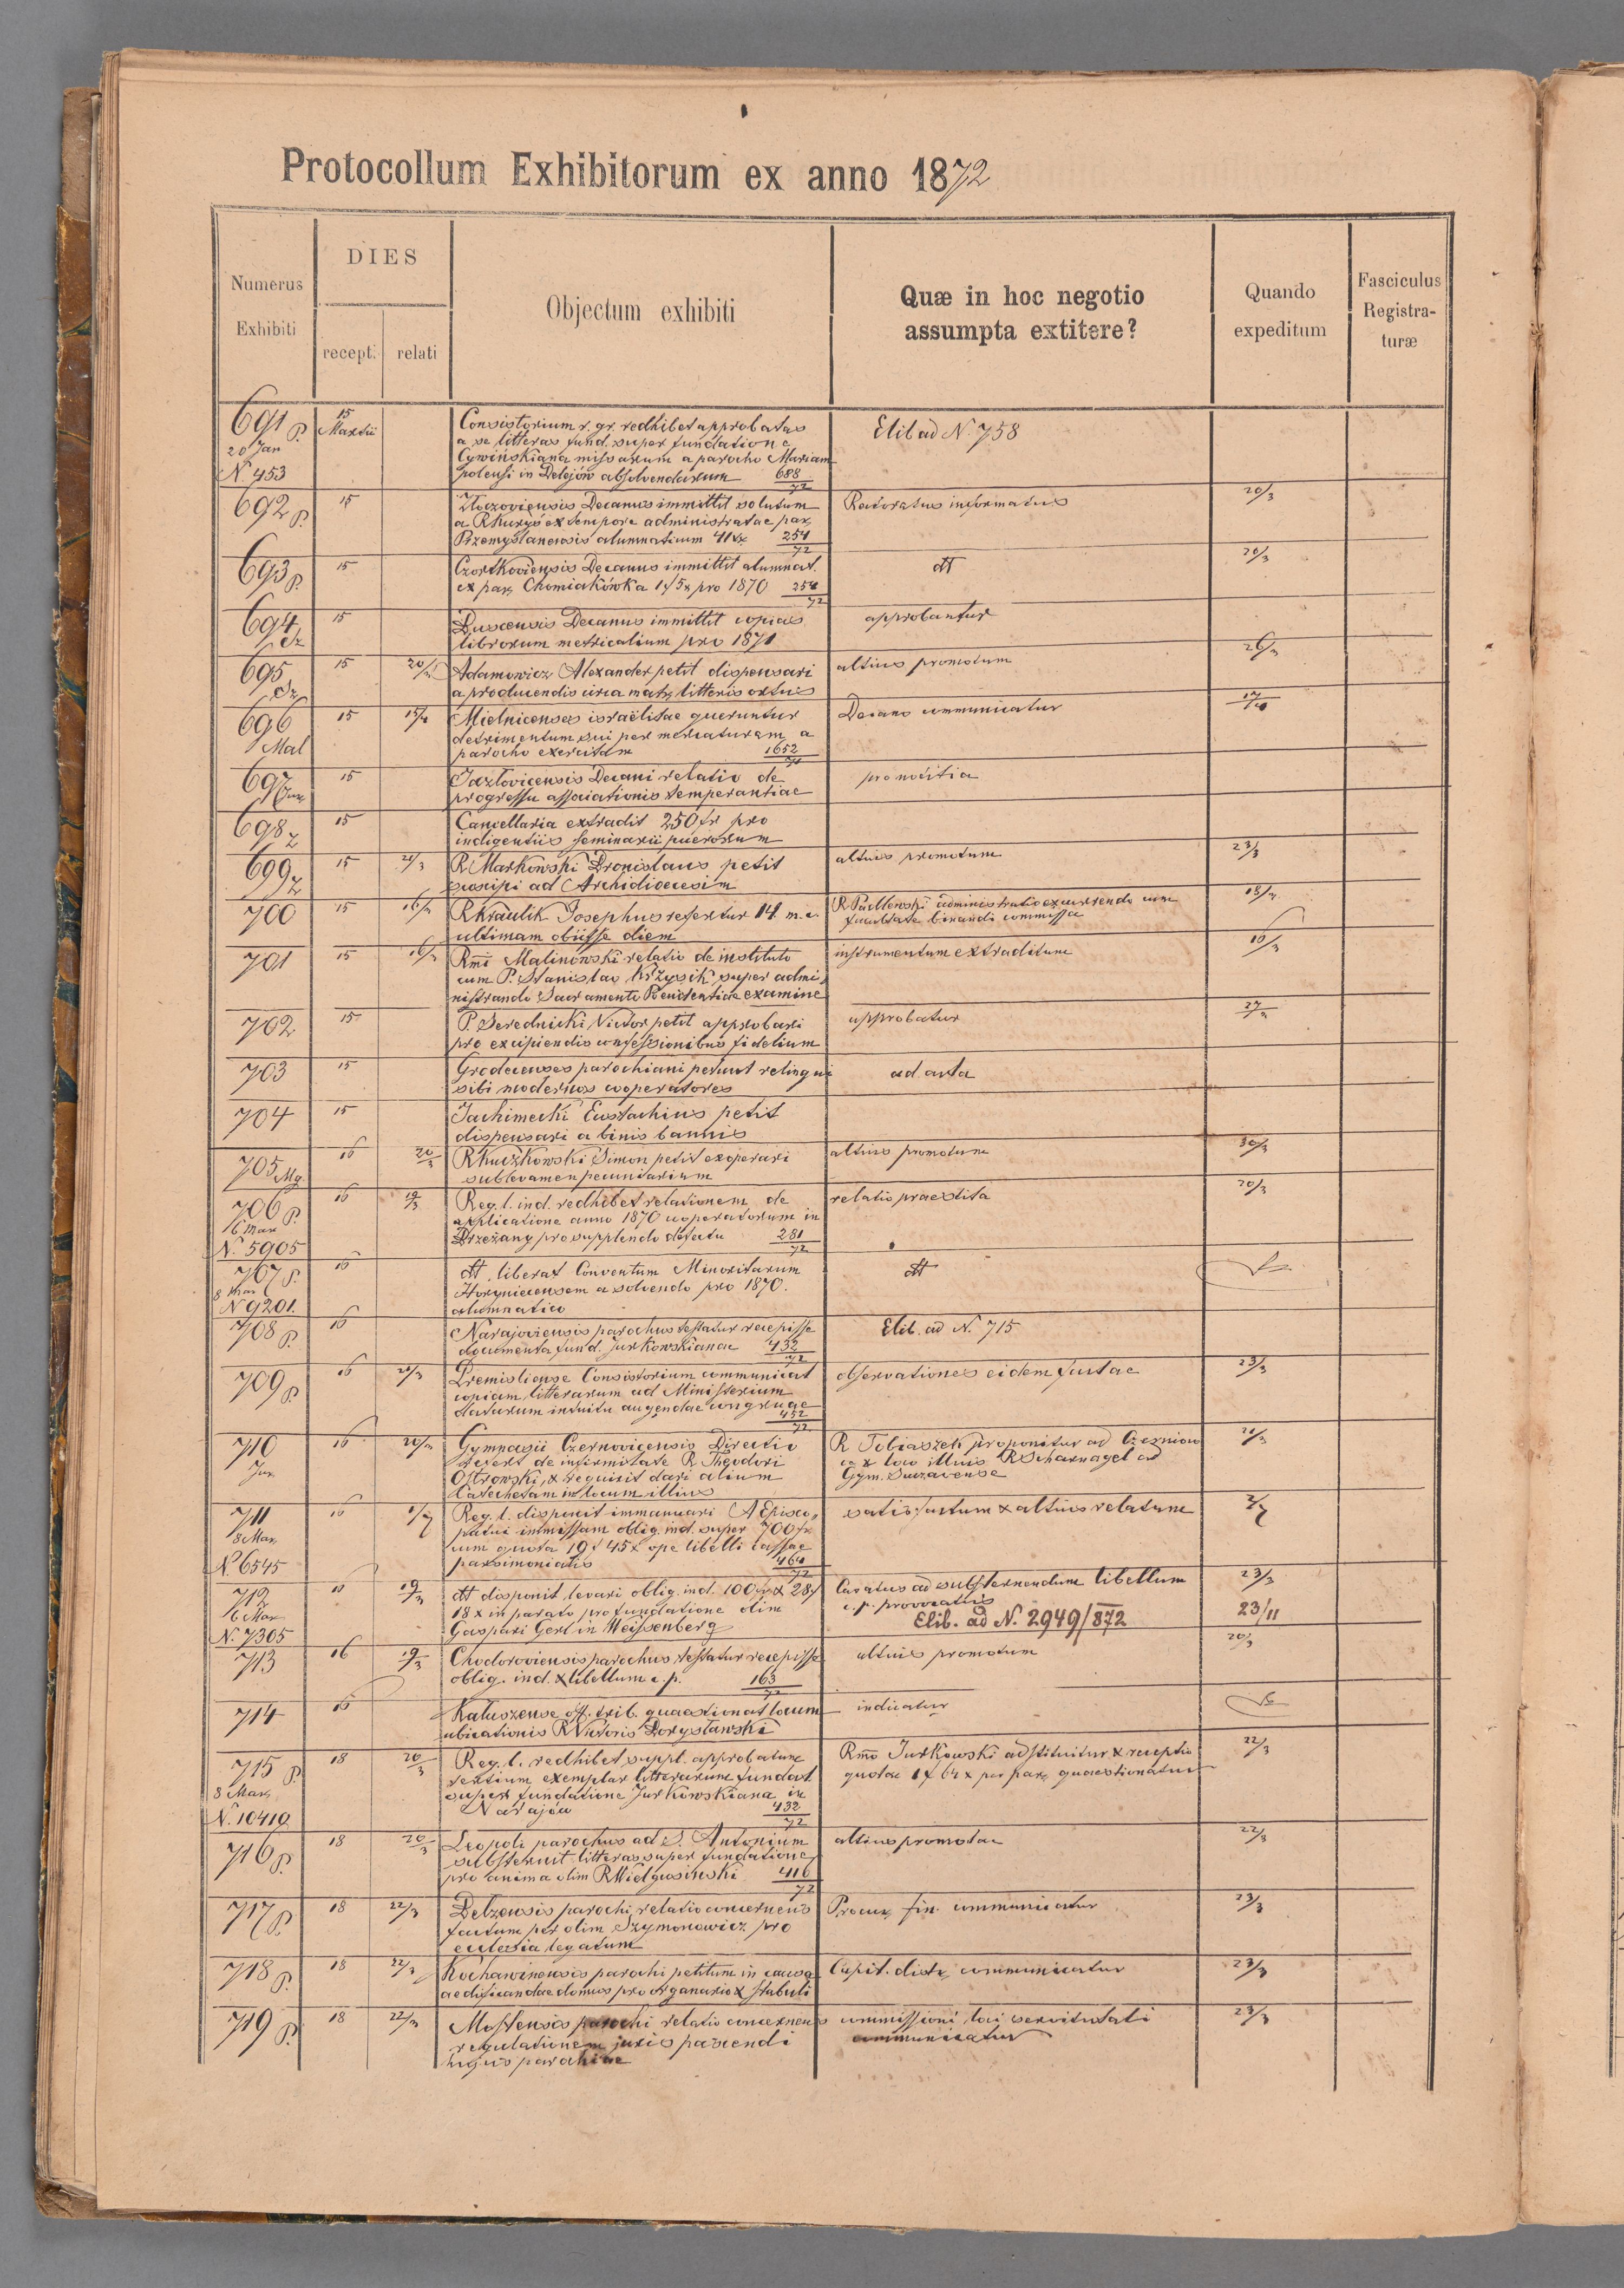 Protocollum Exhibitorum ex anno 1872
Numerus Exhibiti
DIES
recepti
relati
Objectum exhibiti
Quæ in hoc negotio assumpta extitere?
Quando expeditum
Fasciculus Registraturæ
691 P. 15 Martii Consistorium r. gr. redhibet approbatas Elib ad N. 758
20 Jan a se litteras fund. super fundatione
Cywińskiana missarum a parocho Mariam
N 453 polensi in Delejów absolvendarum 688/72
692 P. 15 Złoczoviensis Decanus immittit solutum Rectoratus informatus 20/3
a R ex tempore administratae par.
Przemyslanensis alumnaticum 254/72
693 P. 15 Czortkoviensis Decanus immittit alumnat. dt 20/3
ex par. Chomiakówka 1f 5x pro 1870 254/72
694 15 Buscensis Decanus immittit copias approbantur
librorum metricalium pro 1871
695 15 20/3 Adamowicz Alexander petit dispensari altius promotum 26/3
a producendis circa matr. litteris ortus
696 15 15/4 Mielnicenses israëlitae queruntur Decano communicatur 17/4
Mal detrimentum sui per mercaturam a
parocho exercitam 1652/71
697 15 Jazlovicensis Decani relatio de pro notitia
progressu associationis temperantiae
698 15 Cancellaria extradit 250 fr pro
indigentiis seminarii puerorum
699 15 21/3 R Markowski Bronislaus petit altius promotum 23/3
suscipi ad Archidioecesim
700 15 16/3 R Kraulik Josephus refertur 14 m. c. R administratio excurrendo cum 18/3
ultimam obiisse diem facultate binandi commissa
701 15 16/3 Rmi Malinowski relatio de instituto instrumentum extraditum 16/3
cum P. Stanislao Krzysik super admi
nistrando Sacramento Poenitentiae examine
702 15 P. Serednicki Victor petit approbari approbatur 27/3
pro excipiendis confessionibus fidelium
703 15 Grodecenses parochiani petunt relinqui ad acta
sibi modernos cooperatores
704 15 Jachimecki Eustachius petit
dispensari a binis bannis
705 Mg. 16 20/3 R Kuczkowski Simon petit exoperari altius promotum 30/3
sublevamen pecuniarium
706 P. 16 19/3 Reg. l. ind. redhibet relationem de relatio praestita 20/3
6 Mar applicatione anno 1870 cooperatorum in
N. 5905 Brzeżany pro supplendo defectu 281/72
707 P. 16 dt liberat Conventum Minoritarum dt
8 Mar Horyniecensem a solvendo pro 1870.
N 9201. alumnatico
708 P. 16 Narajoviensis parochus testatur recepisse Elib. ad N. 715
documenta fund. Jurkowskianae 432/72
709 P. 16 20/3 Premisliense Consistorium communicat observationes eidem factae 23/3
copiam litterarum ad Ministerium
datarum intuitu augendae congruae
452/72
710 16 20/3 Gymnasii Czernovicensis Directio R Tobiaszek proponitur ad Czerniow 21/3
Jur. refert de infirmitate R Theodori ce & loco illius R Scharnagel ad
Ostrowski, & requirit dari alium Gym. Suczavense
Catechetam in locum illius
711 16 Reg. l. disponit immanuari AEpisco satisfactum & altius relatum
8 Mar patui immissam oblig. ind. super 700 fr
cum quota 19f 45x ope libelli cassae
N 6545 parsimonialis 464/72
712 19/3 dt disponit levari oblig. ind. 100 fr & 28f Curatus ad substernendum libellum 23/3
6 Mar 18x in parato pro fundatione olim c. p. provocatus
N. 7305 Gaspari Gerl in Weissenberg Elib. ad N. 2949/872 23/11
713 16 19/3 Chodoroviensis parochus testatur recepisse altius promotum 20/3
oblig. ind. & libellum c. p. 163/72
714 16 Kałuszense off. trib. quaestionat locum indicatur
ubicationis R Victoris Borysławski
715 P. 18 20/3 Reg. l. redhibet suppl. approbatum Rmo Jurkowski adstituitur & receptio 22/3
8 Mar. tertium exemplar litterarum fundat. quotae 1f 64x per par. quaestionatur
super fundatione Jurkowskiana in
N. 10410 Narajów 432/72
716 P. 18 20/3 Leopoli parochus ad S. Antonium altius promotae 22/3
substernit litteras super fundatione
pro anima olim R Wielgusiński 416/72
717 P. 18 22/3 Belzensis parochi relatio concernens Procur. fin. communicatur 23/3
factum per olim Szymonowicz pro
ecclesia legatum
718 P. 18 22/3 Kochavinensis parochi petitum in causa Capit. distr. communicatur 23/3
aedificandae domus pro organario & stabuli
719 P. 18 22/3 Mostensis parochi relatio concernens commissioni loci servitutali 23/3
regulationem juris pascendi communicatur
hujus parochiae